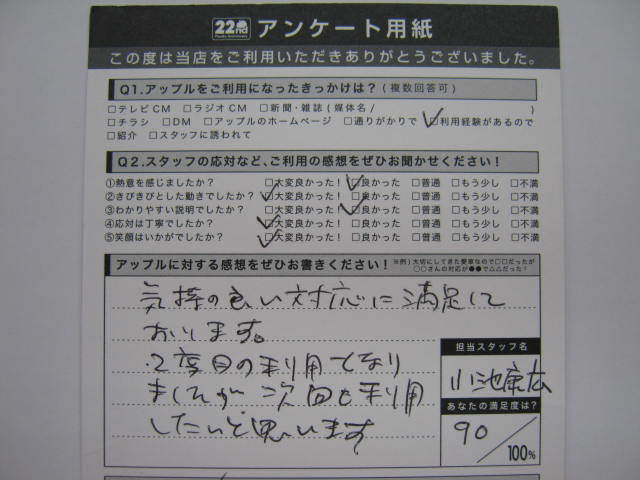 22nd アンケート用紙
この度は当店をご利用いただきありがとうございました。
Q1.アップルをご利用になったきっかけは？(複数回答可)
□テレビCM □ラジオCM □新聞・雑誌(媒体名/ )
□チラシ □DM □アップルのホームページ □通りがかりで □利用経験があるので
□紹介 □スタッフに誘われて
Q2.スタッフの応対など、ご利用の感想をぜひお聞かせください！
①熱意を感じましたか？ □大変良かった！ □良かった □普通 □もう少し □不満
②きびきびとした動きでしたか？ □大変良かった！ □良かった □普通 □もう少し □不満
③わかりやすい説明でしたか？ □大変良かった！ □良かった □普通 □もう少し □不満
④応対は丁寧でしたか？ □大変良かった！ □良かった □普通 □もう少し □不満
⑤笑顔はいかがでしたか？ □大変良かった！ □良かった □普通 □もう少し □不満
アップルに対する感想をぜひお書きください！
※例）大切にしてきた愛車なので○□だったが
□□さんの対応が●●で△△だった！
気持の良い対応に満足して
おります。
2度目の利用となり
ましたが次回も利用
したいと思います
担当スタッフ名
小池康広
あなたの満足度は？
90/100%